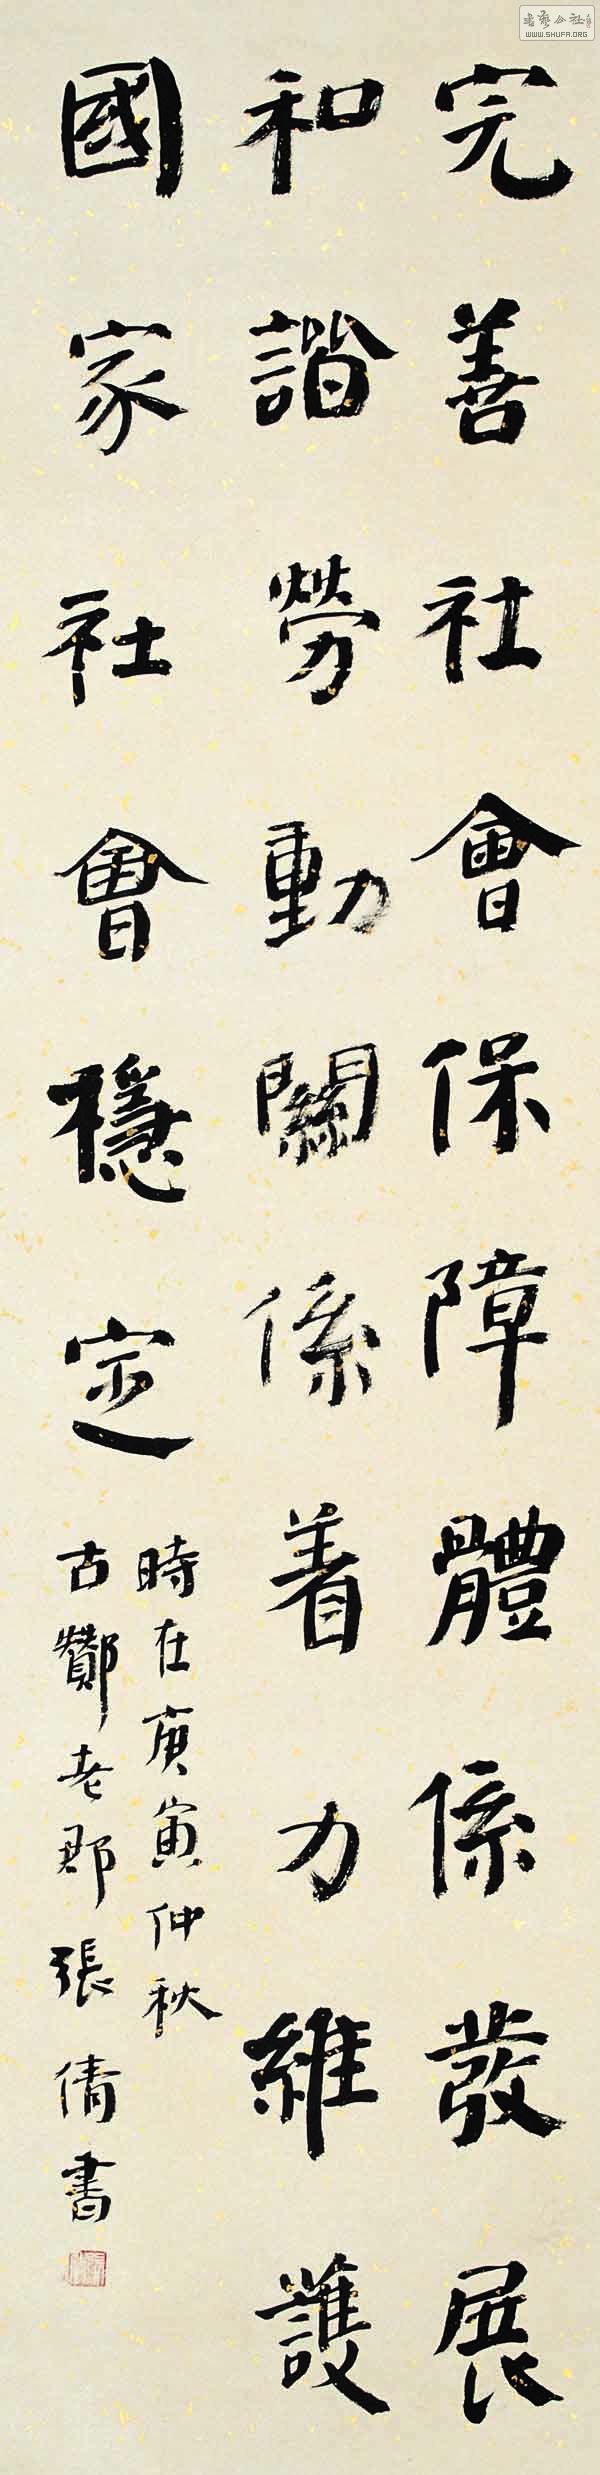 完善社會保障體係發展
和諧勞動關係着力維護
國家社會穩定
時在庚寅仲秋
古酇老郡張倩書
書藝公社
WWW.SHUFA.ORG